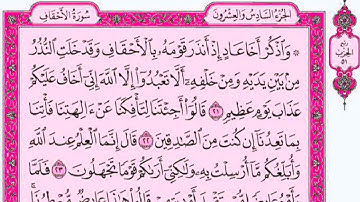 الجزء السادس والعشرون
سورة الأحقاف
ربع
الحزب
٥١
۞ وَاذْكُرْ أَخَا عَادٍ إِذْ أَنذَرَ قَوْمَهُ بِالْأَحْقَافِ وَقَدْ خَلَتِ النُّذُرُ
مِن بَيْنِ يَدَيْهِ وَمِنْ خَلْفِهِ أَلَّا تَعْبُدُوا إِلَّا اللَّهَ إِنِّي أَخَافُ عَلَيْكُمْ
عَذَابَ يَوْمٍ عَظِيمٍ ٢١ قَالُوا أَجِئْتَنَا لِتَأْفِكَنَا عَنْ آلِهَتِنَا فَأْتِنَا
بِمَا تَعِدُنَا إِن كُنتَ مِنَ الصَّادِقِينَ ٢٢ قَالَ إِنَّمَا الْعِلْمُ عِندَ اللَّهِ
وَأُبَلِّغُكُم مَّا أُرْسِلْتُ بِهِ وَلَٰكِنِّي أَرَاكُمْ قَوْمًا تَجْهَلُونَ ٢٣ فَلَمَّا